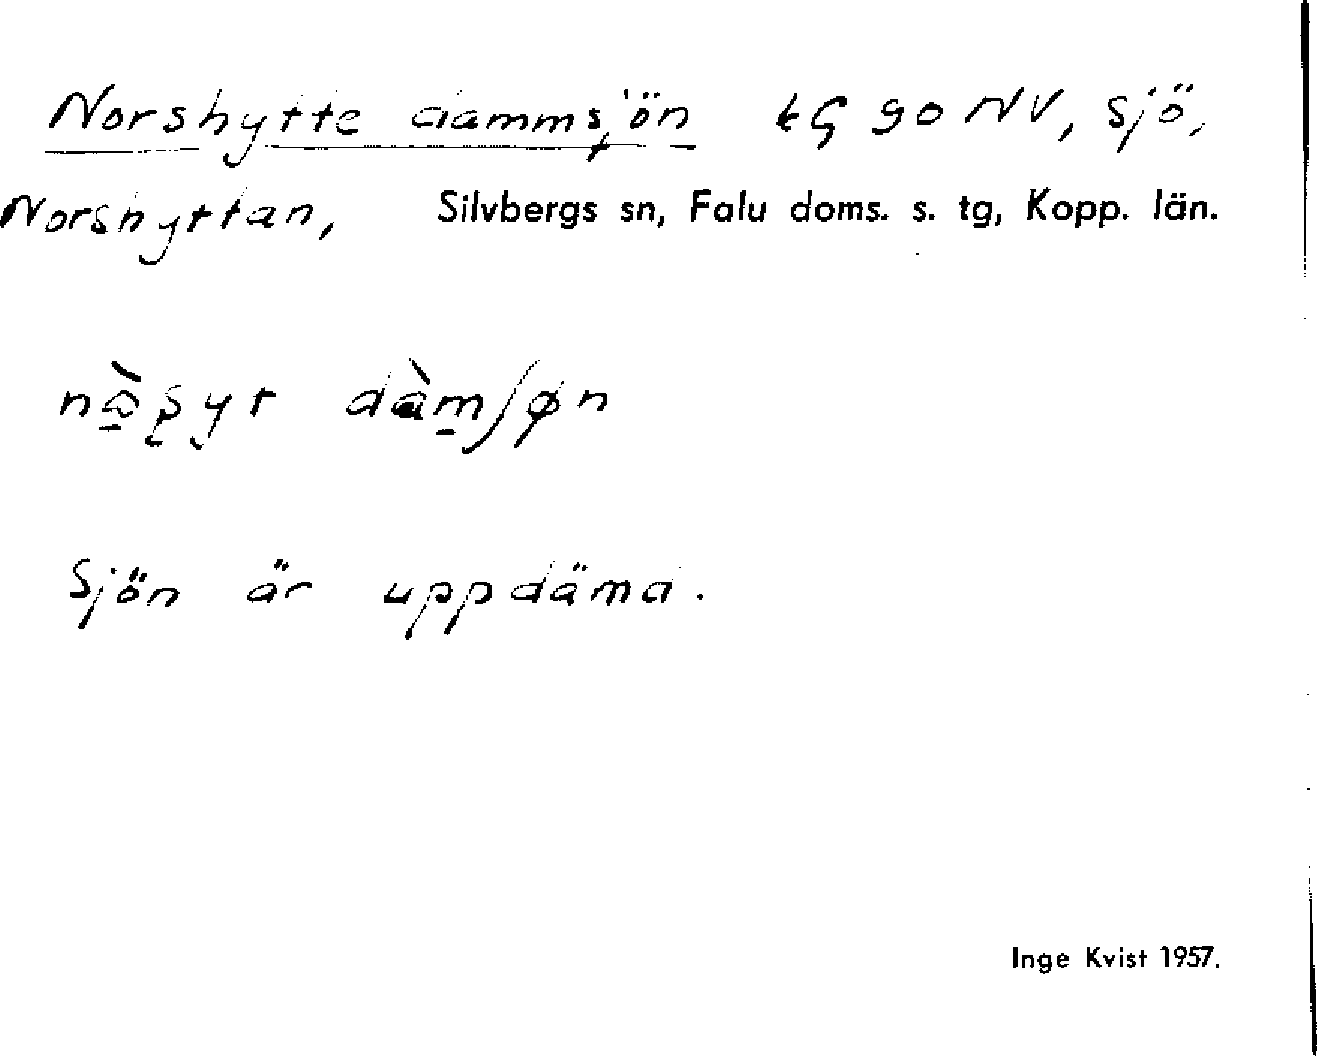 Norshytte dammsjön tG 90 NV, sjö,
Norshyttan, Silvbergs sn, Falu doms. s. tg, Kopp. län.
dàmʃøn
Sjön är uppdämd.
Inge Kvist 1957.